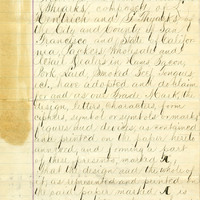 & Sharks, composed of J.
Hendrick and S. Sharks of
the City and County of San
Francisco and State of Califor
nia, Packers, Wholesale and
Retail Dealers in Hams, Bacon,
Pork Lard, Smoked Beef, Tongues
&c, have adopted and do claim
for and as our Trade Mark the
design, letters, characters, form
ciphers, symbol or symbols or marks,
figures and devices, as contained
and printed on the paper hereto
annexed, and forming a part
of these presents marked A,
That the design and the whole of
it, as represented and printed on
the said paper marked A is